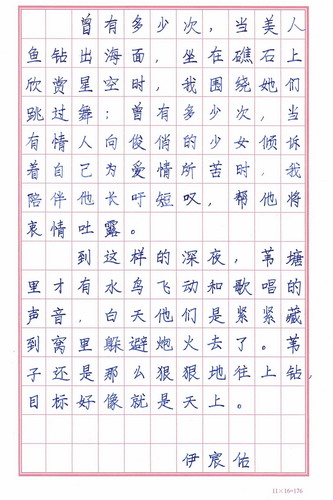 曾有多少次，当美人
鱼钻出海面，坐在礁石上
欣赏星空时，我围绕她们
跳过舞；曾有多少次，当
有情人向俊俏的少女倾诉
着自己为爱情所苦时，我
陪伴他长吁短叹，帮他将
哀情吐露。
到这样的深夜，苇塘
里才有水鸟飞动和歌唱的
声音，白天他们是紧紧藏
到窝里躲避炮火去了。苇
子还是那么狠狠地往上钻，
目标好像就是天上。
伊宸佑
11×16=176